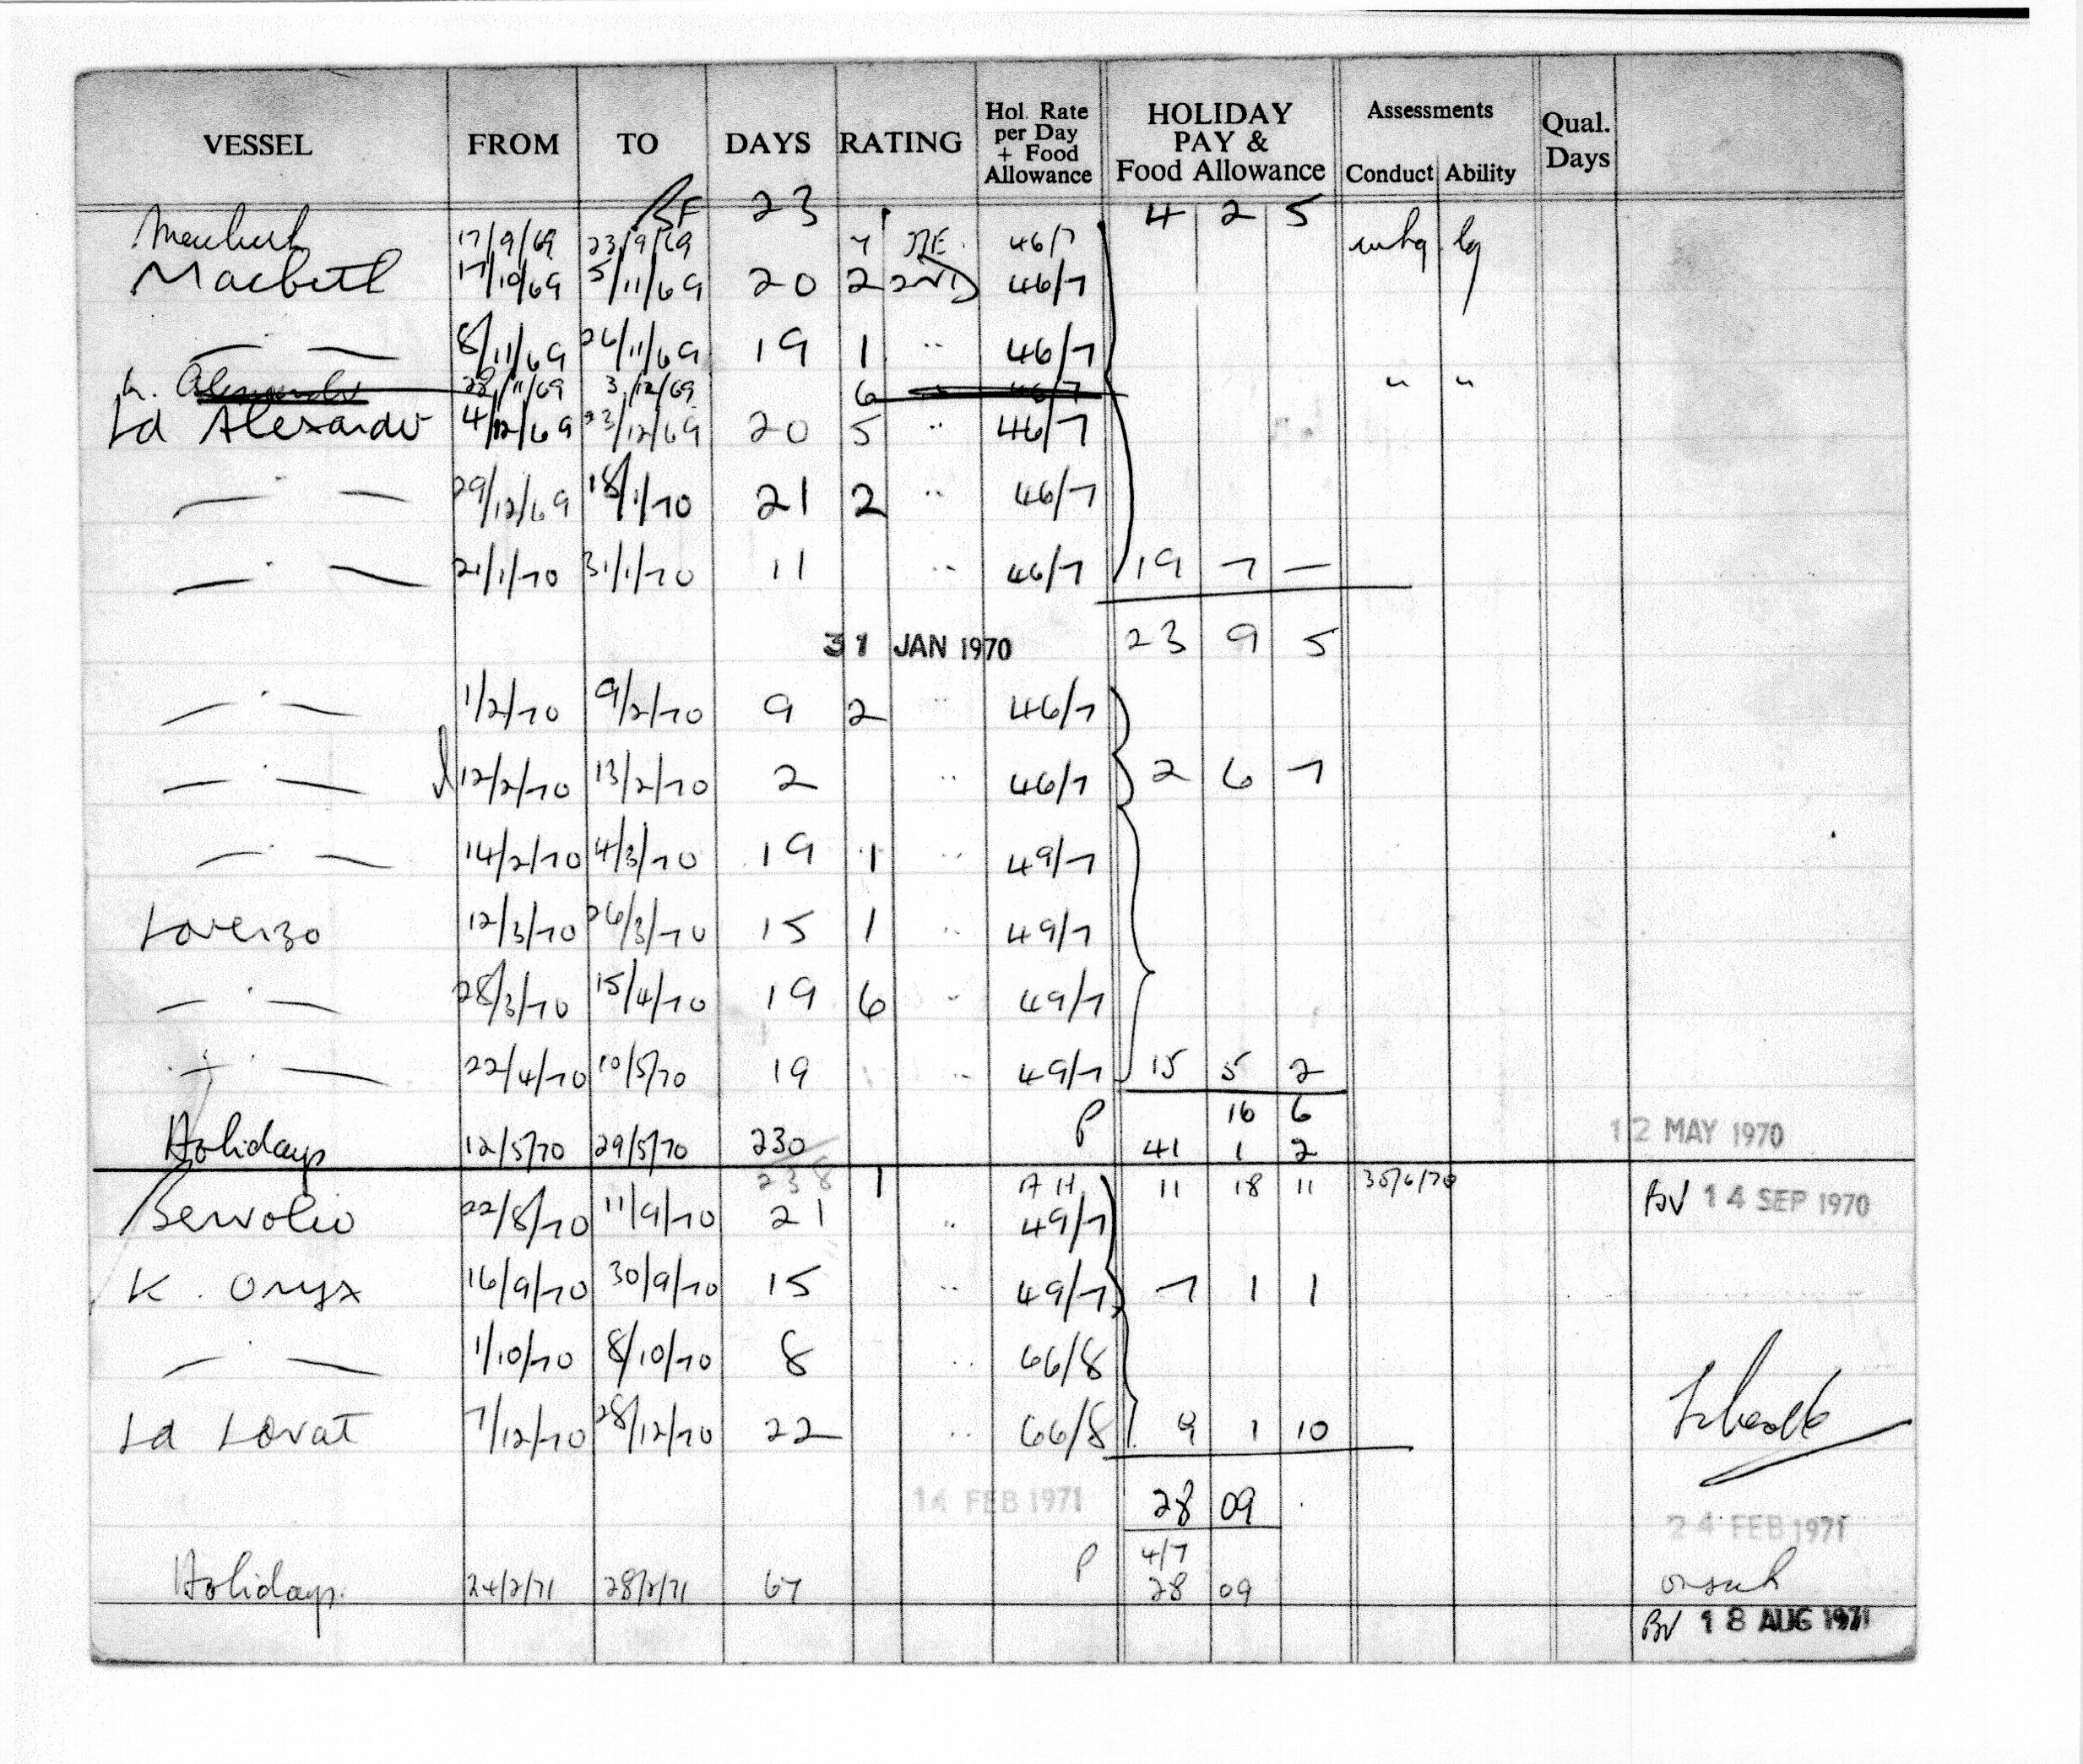 VESSEL FROM TO DAYS RATING Hol. Rate per Day + Food Allowance HOLIDAY PAY & Food Allowance Assessments Conduct Ability Qual. Days
BF 23 4 2 5
17/9/69 23/9/69 46/7
Macbeth 17/10/69 5/11/69 20 2 2ND 46/7
— " — 8/11/69 26/11/69 19 1 " 46/7
28/11/69 3/12/69 6 " 46/7 " "
Ld Alexander 4/12/69 23/12/69 20 5 " 46/7
— " — 29/12/69 18/1/70 21 2 " 46/7
— " — 21/1/70 31/1/70 11 " 46/7 19 7 —
31 JAN 1970 23 9 5
— " — 1/2/70 9/2/70 9 2 " 46/7
— " — 12/2/70 13/2/70 2 " 46/7 2 6 7
— " — 14/2/70 4/3/70 19 1 " 49/7
Lorenzo 12/3/70 26/3/70 15 1 " 49/7
— " — 28/3/70 15/4/70 19 6 " 49/7
— " — 22/4/70 10/5/70 19 " 49/7 15 5 2
P 16 6
Holidays 12/5/70 29/5/70 230 41 1 2 12 MAY 1970
238 1 AH 11 18 11 30/6/70
Benvolio 22/8/70 11/9/70 21 " 49/7 BV 14 SEP 1970
K. Onyx 16/9/70 30/9/70 15 " 49/7 7 1 1
— " — 1/10/70 8/10/70 8 " 66/8
Ld Lovat 7/12/70 28/12/70 22 " 66/8 9 1 10
14 FEB 1971 28 09
24 FEB 1971
P 4/7
Holidays. 24/2/71 28/2/71 67 28 09
BV 18 AUG 1971